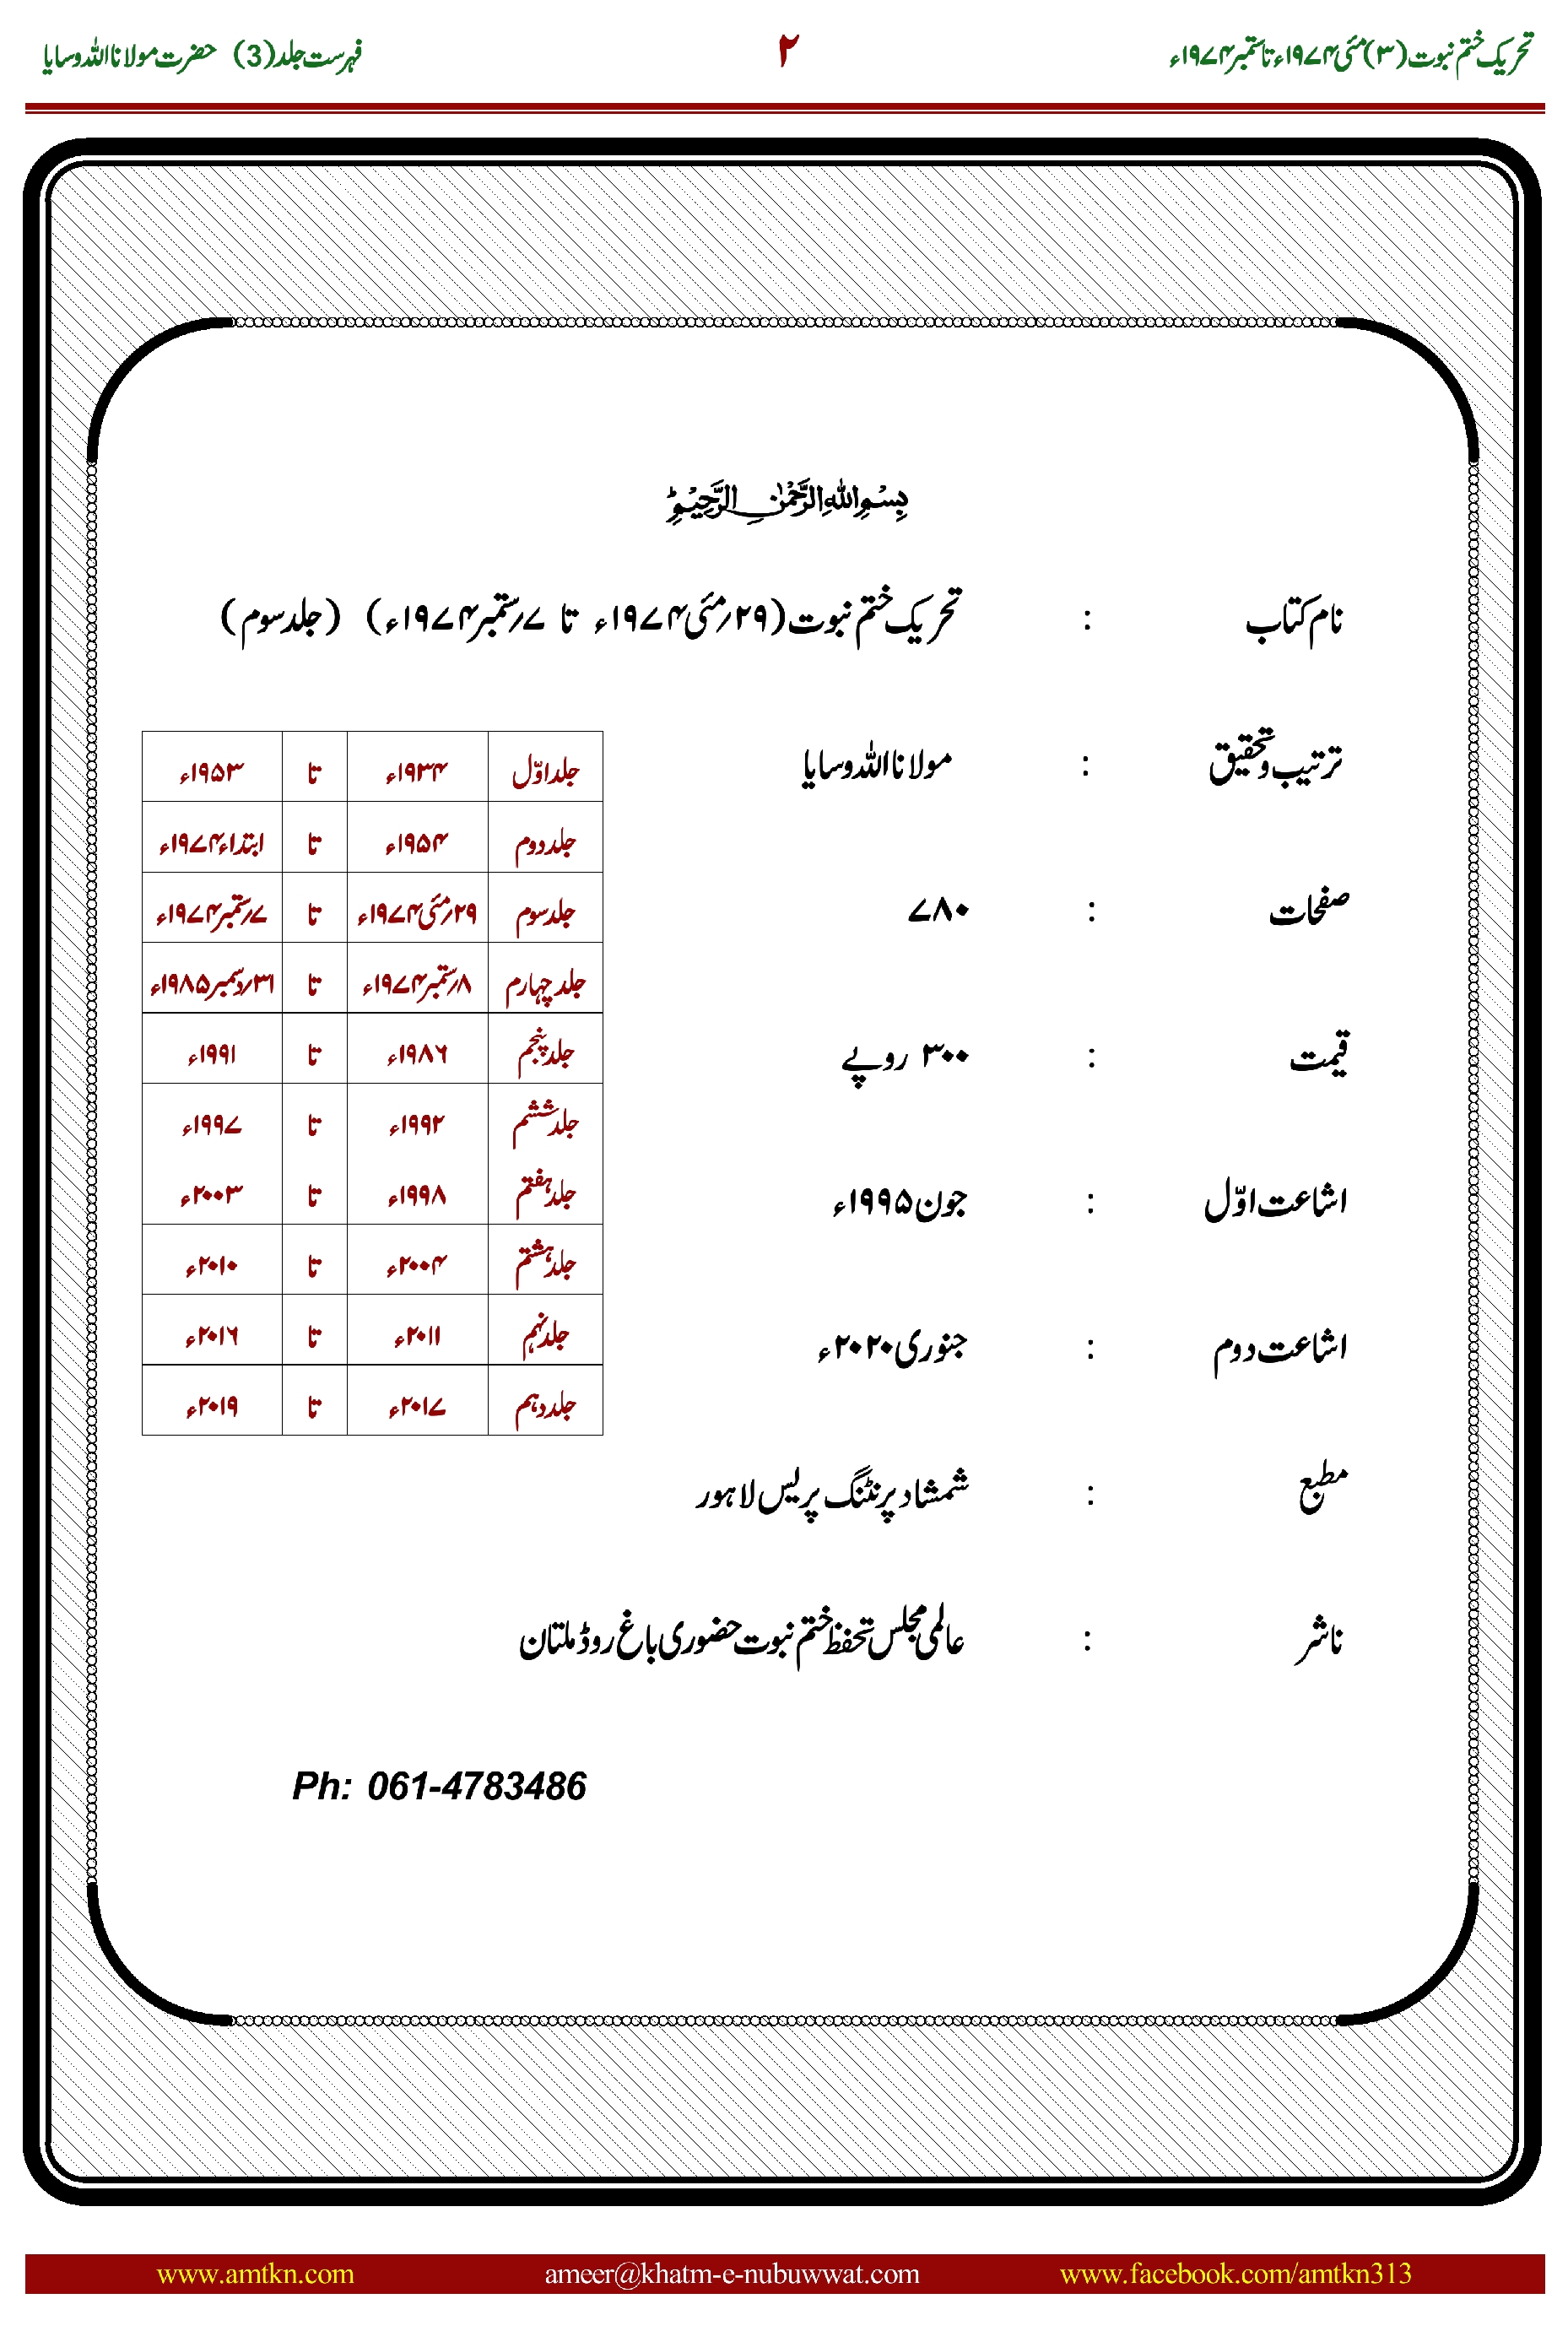 تحریک ختم نبوت (۳) مئی ۱۹۷۴ء تا ستمبر ۱۹۷۴ء ۲ فہرست جلد (3) حضرت مولانا اللہ وسایا
بِسْمِ اللهِ الرَّحْمٰنِ الرَّحِيْمِ
نام کتاب : تحریک ختم نبوت (۲۹؍مئی ۱۹۷۴ء تا ۷؍ستمبر ۱۹۷۴ء) (جلد سوم)
ترتیب و تحقیق : مولانا اللہ وسایا
صفحات : ۷۸۰
قیمت : ۳۰۰ روپے
اشاعت اوّل : جون ۱۹۹۵ء
اشاعت دوم : جنوری ۲۰۲۰ء
مطبع : شمشاد پرنٹنگ پریس لاہور
ناشر : عالمی مجلس تحفظ ختم نبوت حضوری باغ روڈ ملتان
جلد اوّل ۱۹۳۴ء تا ۱۹۵۳ء
جلد دوم ۱۹۵۴ء تا ابتداء ۱۹۷۴ء
جلد سوم ۲۹؍مئی ۱۹۷۴ء تا ۷؍ستمبر ۱۹۷۴ء
جلد چہارم ۸؍ستمبر ۱۹۷۴ء تا ۳۱؍دسمبر ۱۹۸۵ء
جلد پنجم ۱۹۸۶ء تا ۱۹۹۱ء
جلد ششم ۱۹۹۲ء تا ۱۹۹۷ء
جلد ہفتم ۱۹۹۸ء تا ۲۰۰۳ء
جلد ہشتم ۲۰۰۴ء تا ۲۰۱۰ء
جلد نہم ۲۰۱۱ء تا ۲۰۱۶ء
جلد دہم ۲۰۱۷ء تا ۲۰۱۹ء
Ph: 061-4783486
www.amtkn.com ameer@khatm-e-nubuwwat.com www.facebook.com/amtkn313